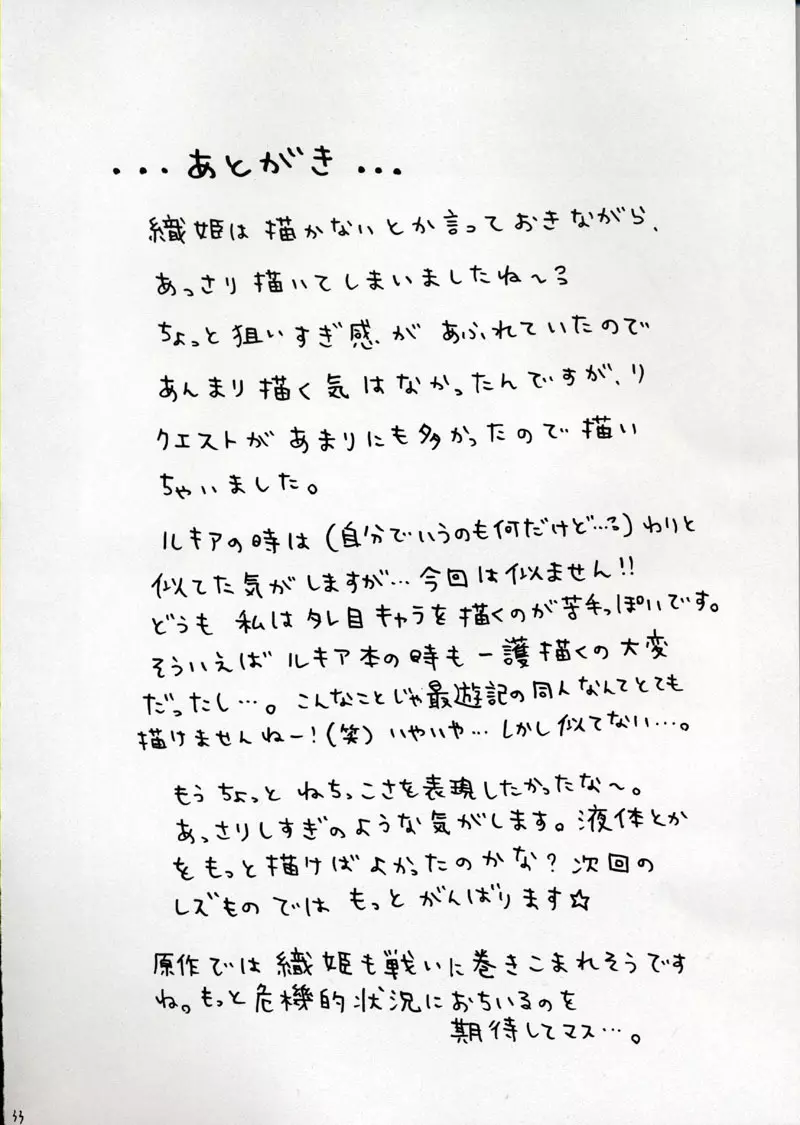 ...あとがき...
織姫は描かないとか言っておきながら、
あっさり描いてしまいましたね〜
ちょっと狙いすぎ感が あふれていたので
あんまり描く気はなかったんですが、リ
クエストがあまりにも多かったので描い
ちゃいました。
ルキアの時は(自分でいうのも何だけど…)わりと
似てた気がしますが…今回は似ません!!
どうも 私はタレ目キャラを描くのが苦手っぽいです。
そういえば ルキア本の時も 一護描くの大変
だったし…。こんなことじゃ最遊記の同人なんてとても
描けませんねー!(笑) いやいや… しかし似てない…。
もう ちょっと ねちっこさを表現したかったな〜。
あっさりしすぎのような気がします。液体とか
をもっと描けばよかったのかな? 次回の
レズものでは もっと がんばります☆
原作では 織姫も戦いに巻きこまれそうです
ね。もっと危機的状況におちいるのを
期待してマス…。
33